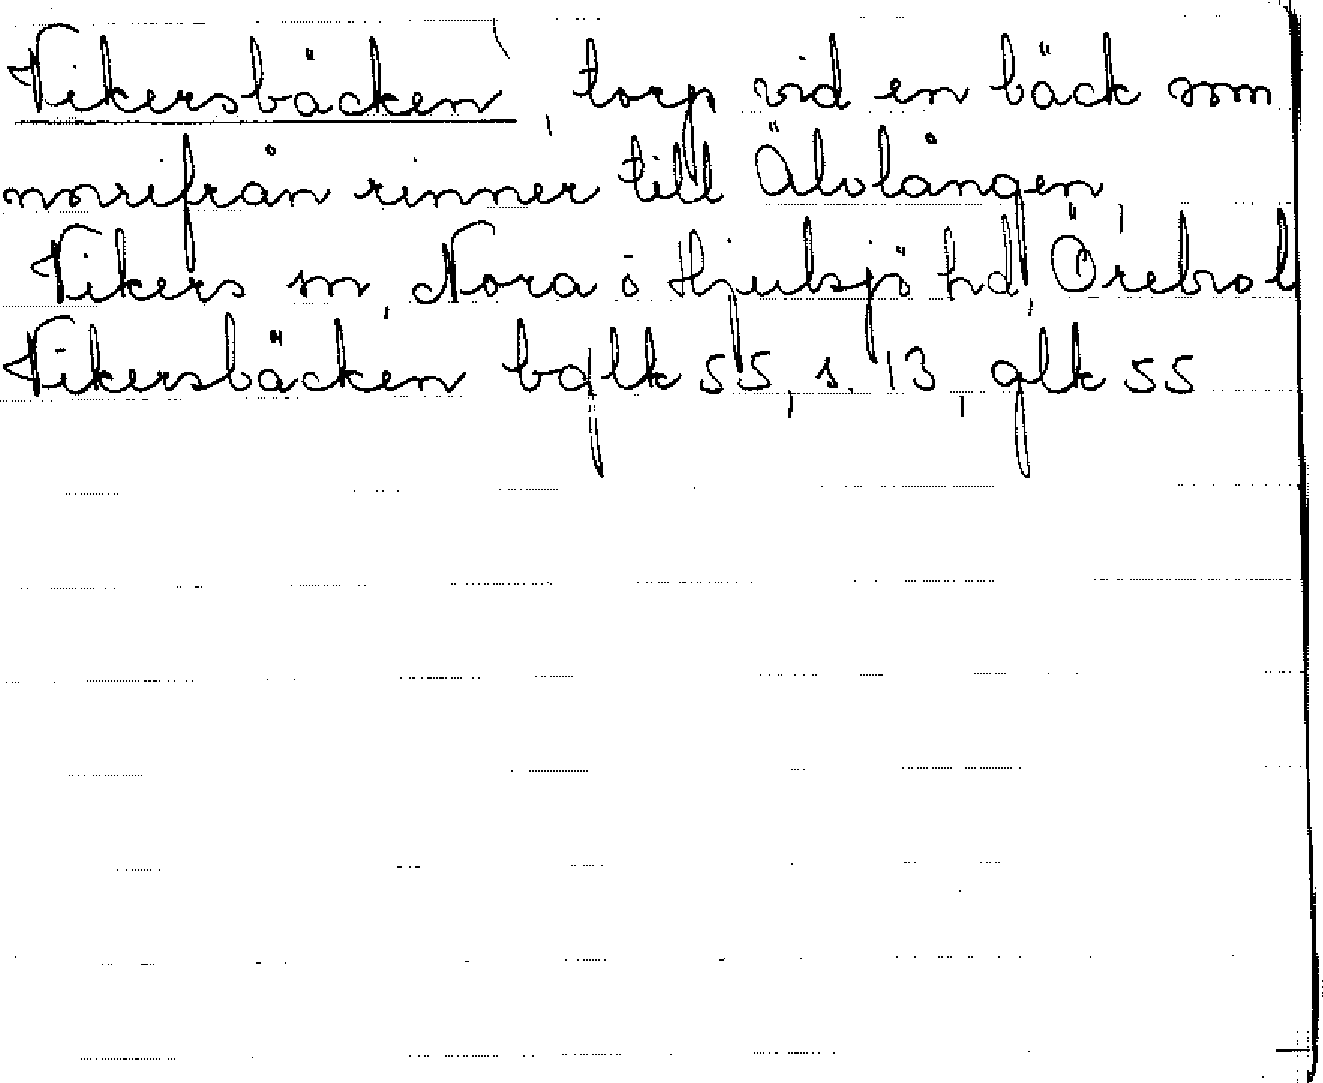 Vikersbäcken, torp vid en bäck som
norrifrån rinner till Älvlången,
Vikers sn, Nora o Hjulsjö hd, Örebro l
Vikersbäcken bglk 55, s. 13, glk 55